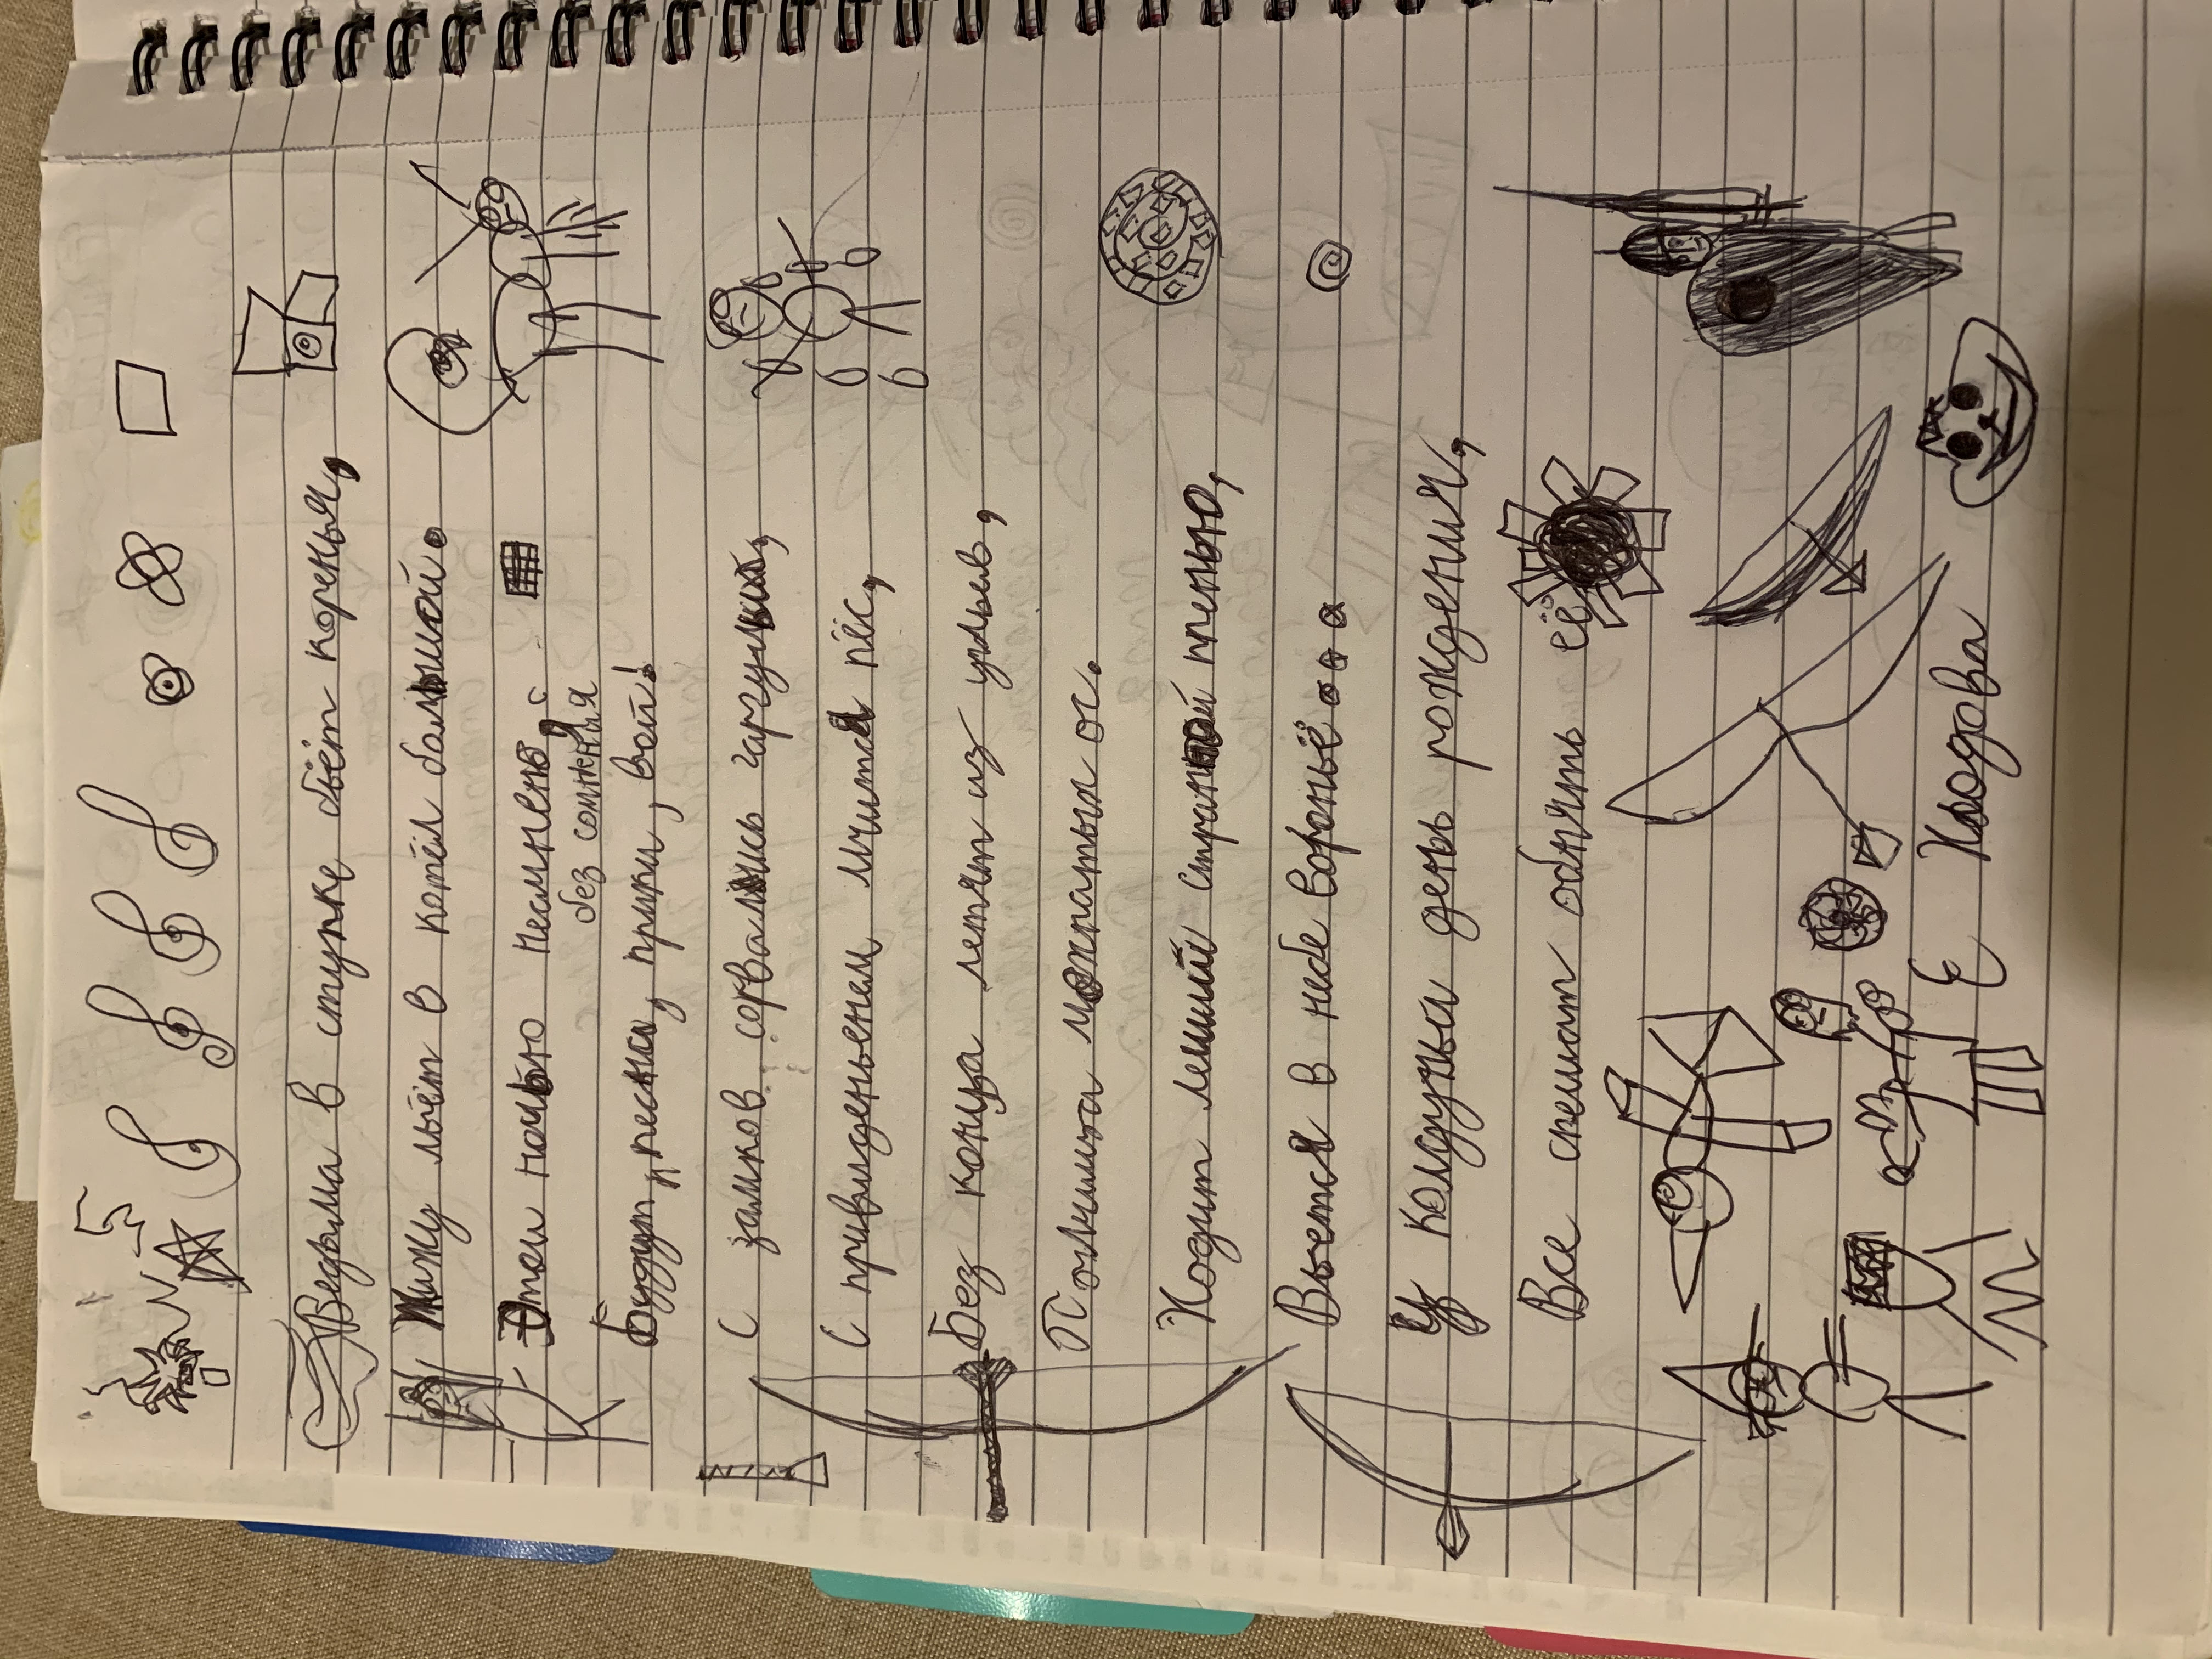 Ведьма в ступке бьёт коренья,
Жижу льёт в котёл большой.
Этой ночью несмненно,
без сомненья
Будут песни, крики, вой!
С замков сорвались гаргульи,
С привиденьем мчится пёс,
Без конца летят из ульев,
Полчища мохнатых ос.
Ходит леший странной тенью,
Вьется в небе вороньё...
У колдуньи день рождения,
Все спешат обнять её
Е Недова